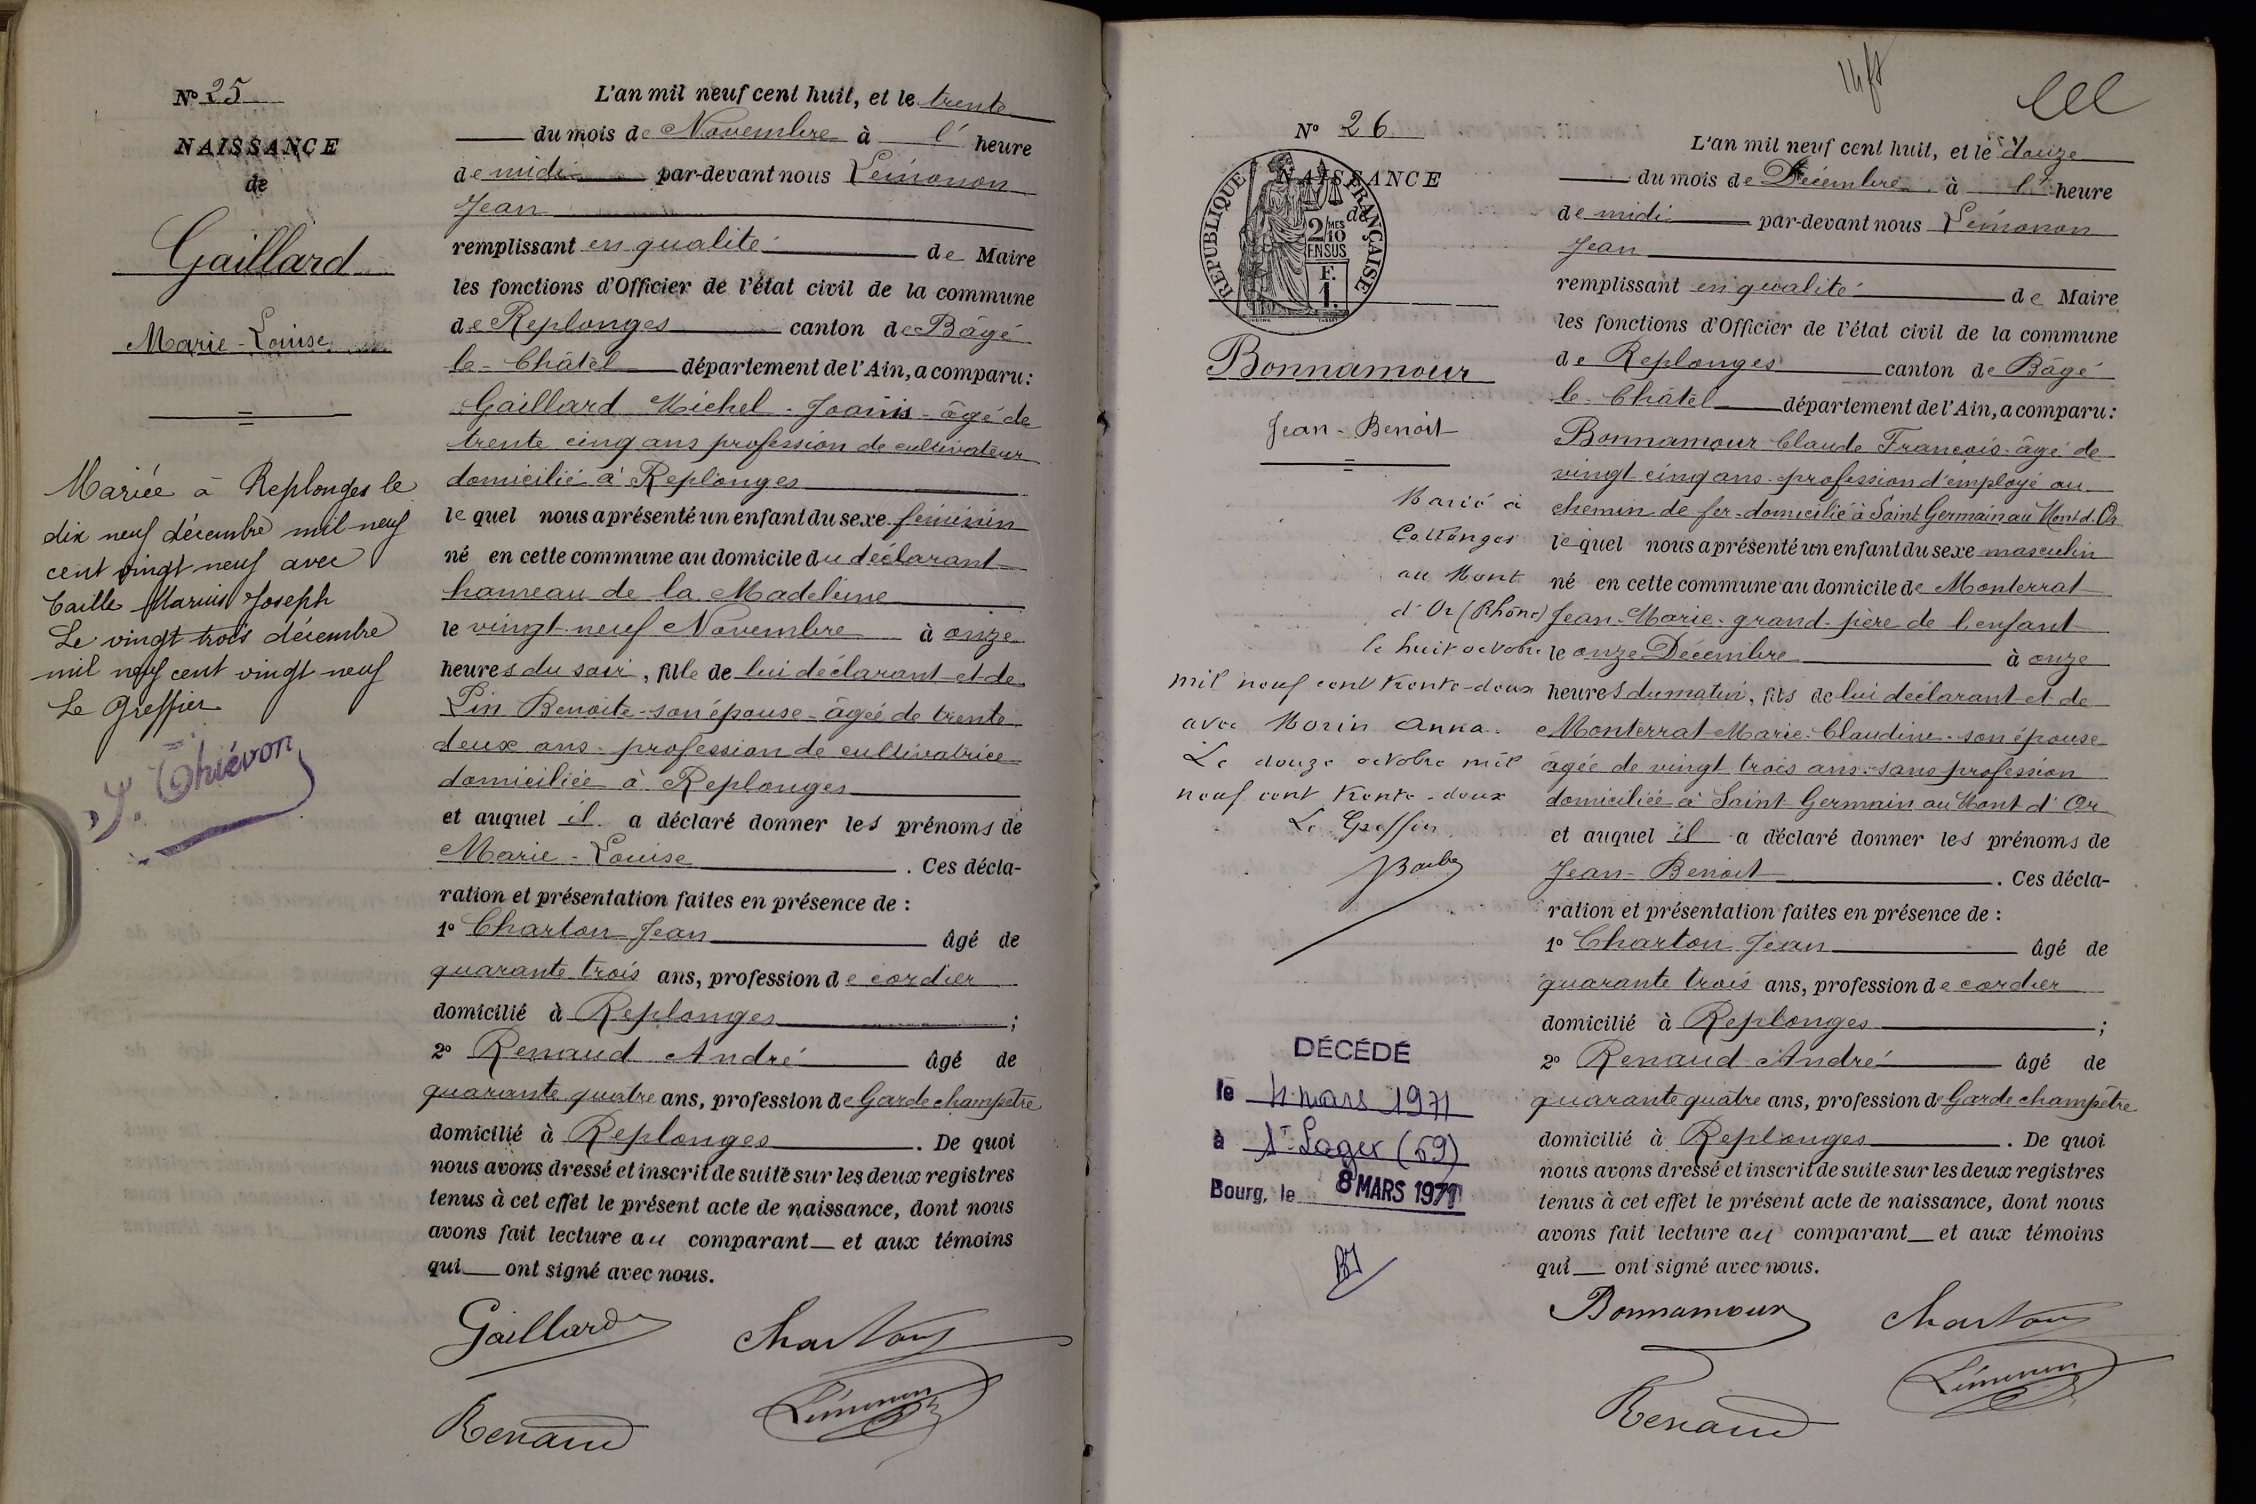 N° 25
NAISSANCE
de
Gaillard
Marie-Louise
Mariée à Replonges le
dix neuf décembre mil neuf
cent vingt neuf avec
Caille Marius Joseph
Le vingt trois décembre
mil neuf cent vingt neuf
Le Greffier
Thiévon
L'an mil neuf cent huit, et le trente
du mois de Novembre à l' heure
de midi par-devant nous Lémonon
Jean
remplissant en qualité de Maire
les fonctions d'Officier de l'état civil de la commune
de Replonges canton de Bâgé
le-Châtel département de l'Ain, a comparu :
Gaillard Michel-Joanis-âgé de
trente cinq ans profession de cultivateur
domicilié à Replonges
lequel nous a présenté un enfant du sexe féminin
né en cette commune au domicile du déclarant
hameau de la Madeleine
le vingt-neuf Novembre à onze
heures du soir, fille de lui déclarant et de
Pin Benoite-son épouse-âgée de trente
deux ans-profession de cultivatrice
domiciliée à Replonges
et auquel il a déclaré donner les prénoms de
Marie-Louise. Ces décla-
ration et présentation faites en présence de :
1° Charton Jean âgé de
quarante trois ans, profession de cordier
domicilié à Replonges ;
2° Renaud André âgé de
quarante quatre ans, profession de Garde champêtre
domicilié à Replonges. De quoi
nous avons dressé et inscrit de suite sur les deux registres
tenus à cet effet le présent acte de naissance, dont nous
avons fait lecture au comparant et aux témoins
qui ont signé avec nous.
Gaillard Charton
Renaud Lémonon
N° 26
NAISSANCE
de
RÉPUBLIQUE FRANÇAISE
2/10 MES
EN SUS
F.
1.
Bonnamour
Jean-Benoit
Marié à
Collonges
au Mont
d'Or (Rhône)
le huit octobre
mil neuf cent trente-deux
avec Morin Anna.
Le douze octobre mil
neuf cent trente-deux
Le Greffier
DÉCÉDÉ
le 4 mars 1971
à St-Lager (69)
Bourg, le 8 MARS 1971
L'an mil neuf cent huit, et le douze
du mois de Décembre à l' heure
de midi par-devant nous Lémonon
Jean
remplissant en qualité de Maire
les fonctions d'Officier de l'état civil de la commune
de Replonges canton de Bâgé
le-Châtel département de l'Ain, a comparu :
Bonnamour Claude François-âgé de
vingt cinq ans-profession d'employé au
chemin de fer-domicilié à Saint Germain au Mont d'Or
lequel nous a présenté un enfant du sexe masculin
né en cette commune au domicile de Monterrat
Jean-Marie-grand-père de l'enfant
le onze Décembre à onze
heures du matin, fils de lui déclarant et de
Monterrat Marie-Claudine-son épouse
âgée de vingt trois ans-sans profession
domiciliée à Saint-Germain au Mont d'Or
et auquel il a déclaré donner les prénoms de
Jean-Benoit. Ces décla-
ration et présentation faites en présence de :
1° Charton Jean âgé de
quarante trois ans, profession de cordier
domicilié à Replonges ;
2° Renaud André âgé de
quarante quatre ans, profession de Garde champêtre
domicilié à Replonges. De quoi
nous avons dressé et inscrit de suite sur les deux registres
tenus à cet effet le présent acte de naissance, dont nous
avons fait lecture au comparant et aux témoins
qui ont signé avec nous.
Bonnamour Charton
Renaud Lémonon